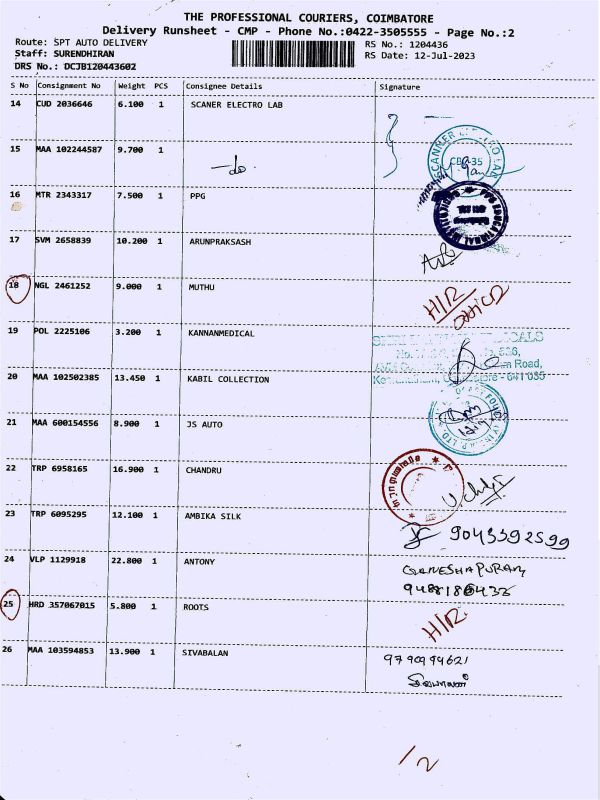 THE PROFESSIONAL COURIERS, COIMBATORE
Delivery Runsheet - CMP - Phone No.:0422-3505555 - Page No.:2
Route: SPT AUTO DELIVERY
Staff: SURENDHIRAN
DRS No.: DCJB120443602
RS No.: 1204436
RS Date: 12-Jul-2023
S No Consignment No Weight PCS Consignee Details Signature
14 CUD 2036646 6.100 1 SCANER ELECTRO LAB
15 MAA 102244587 9.700 1 -do-
16 MTR 2343317 7.500 1 PPG
17 SVM 2658839 10.200 1 ARUNPRAKSASH
18 NGL 2461252 9.000 1 MUTHU H/R
19 POL 2225106 3.200 1 KANNANMEDICAL
Road,
641 035
20 MAA 102502385 13.450 1 KABIL COLLECTION
21 MAA 600154556 8.900 1 JS AUTO
22 TRP 6958165 16.900 1 CHANDRU
23 TRP 6095295 12.100 1 AMBIKA SILK 9043392599
24 VLP 1129918 22.800 1 ANTONY GANESHAPURAM
25 HRD 357067015 5.800 1 ROOTS H/R
26 MAA 103594853 13.900 1 SIVABALAN 9790994621
சிவபாலன்
/2